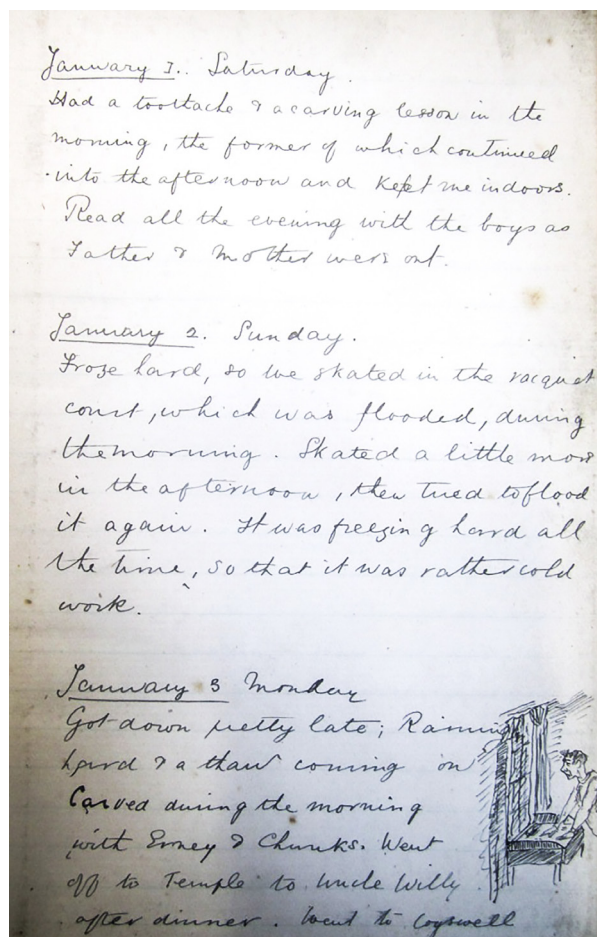 January 1. Saturday.
Had a toothache & a carving lesson in the
morning, the former of which continued
into the afternoon and kept me indoors.
Read all the evening with the boys as
Father & Mother were out.
January 2. Sunday.
Froze hard, so we skated in the racquet
court, which was flooded, during
the morning. Skated a little more
in the afternoon, then tried to flood
it again. It was freezing hard all
the time, so that it was rather cold
work.
January 3 Monday
Got down pretty late; Raining
hard & a thaw coming on
Carved during the morning
with Erney & Chunks. Went
off to Temple to Uncle Willy
after dinner. Went to Cogswell